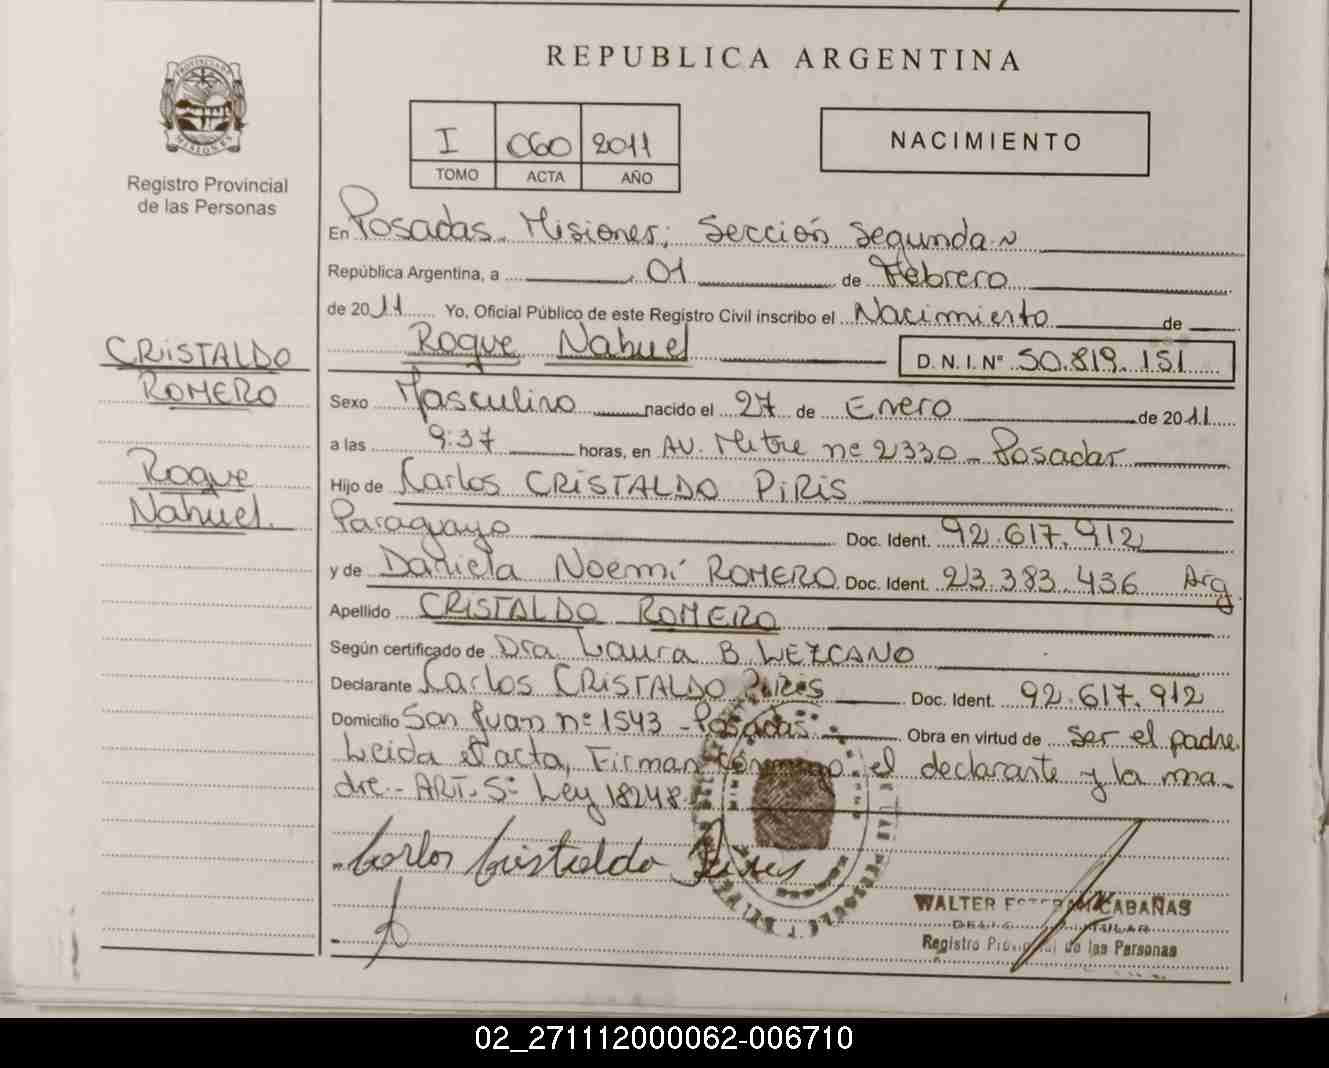 REPUBLICA ARGENTINA
PROVINCIA DE
MISIONES
Registro Provincial
de las Personas
I 060 2011
TOMO ACTA AÑO
NACIMIENTO
En Posadas. Misiones; Sección Segunda
República Argentina, a 01 de Febrero
de 2011 Yo, Oficial Público de este Registro Civil inscribo el Nacimiento de
Roque Nahuel D. N. I. Nº 50.819.151
CRISTALDO
ROMERO
Roque
Nahuel.
Sexo Masculino nacido el 27 de Enero de 2011
a las 9:37 horas, en AV. Mitre nº 2330 - Posadas
Hijo de Carlos CRISTALDO PIRIS
Paraguayo Doc. Ident. 92.617.912
y de Daniela Noemí ROMERO Doc. Ident. 23.383.436 Arg
Apellido CRISTALDO ROMERO
Según certificado de Dra. Laura B LEZCANO
Declarante Carlos CRISTALDO PIRIS Doc. Ident. 92.617.912
Domicilio San Juan nº 1543 - Posadas Obra en virtud de ser el padre.
Leida el acta, Firman conmigo el declarante y la ma-
dre.- ART. 5º Ley 18248.
Carlos Cristaldo Piris
WALTER CABAÑAS
Registro Provincial de las Personas
02_271112000062-006710